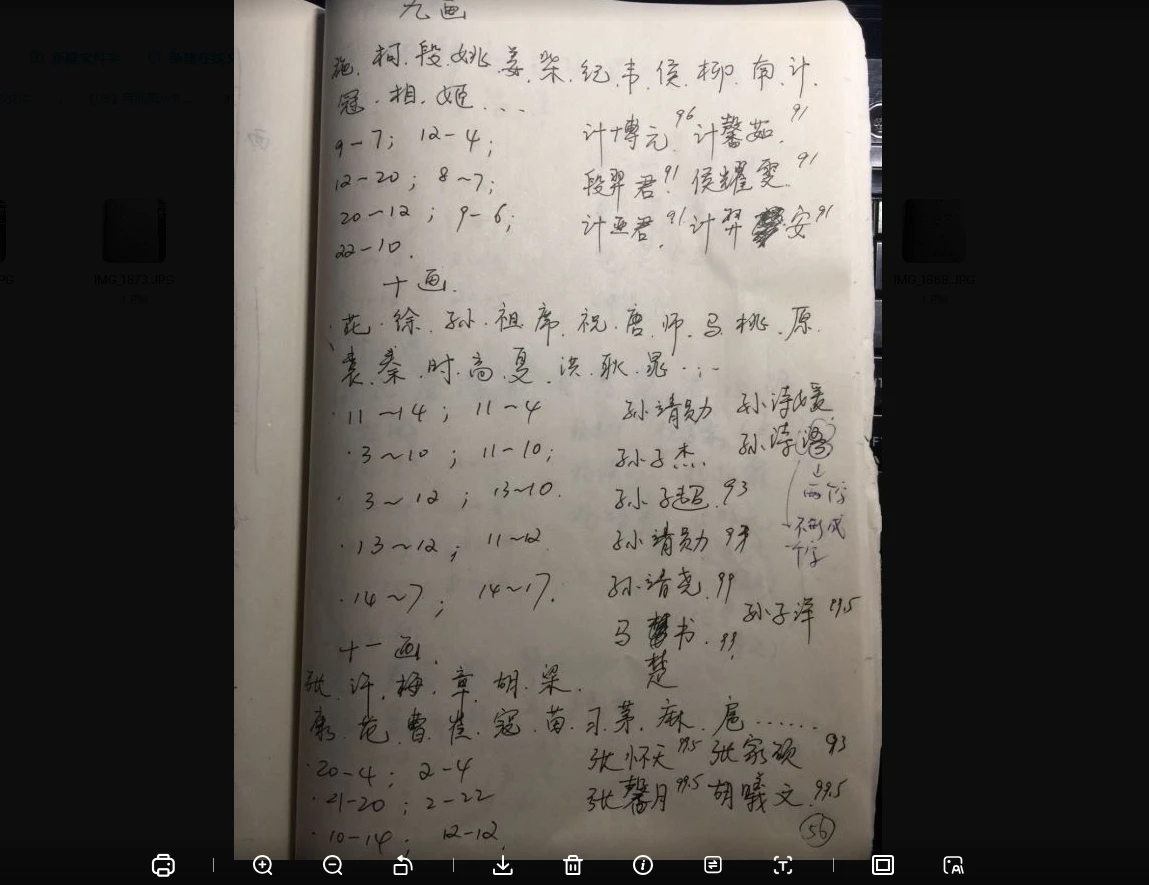 九画
施.柯.段.姚.姜.柴.纪.韦.侯.柳.南.计.
冠.相.姬...
9-7; 12-4; 计博元96 计馨茹.91
12-20; 8~7; 段羿君.91 侯耀雯.91
20~12; 9-6; 计亚君.91 计羿安91
22-10.
十画.
花.徐.孙.祖.席.祝.唐.师.马.桃.原.
袁.秦.时.高.夏.洪.耿.晁...
11~14; 11~4 孙靖勋 孙诗媛
3~10; 11-10; 孙子杰. 孙诗涵
↓
两字
3~12; 13~10. 孙子超.93
不形成
13~12; 11~12 孙靖勋
14~7; 14~17. 孙靖尧.99
孙子洋99.5
马书.99.
楚
十一画.
张.许.梅.章.胡.梁.
康.范.曹.崔.寇.苗.习.茅.麻.扈......
20-4; 2-4 张怀天99.5 张家硕 93
21-20; 2-22 张馨月99.5 胡曦文.99.5
10-14; 12-12.
56
IMG_1673.JPG
IMG_1668.JPG